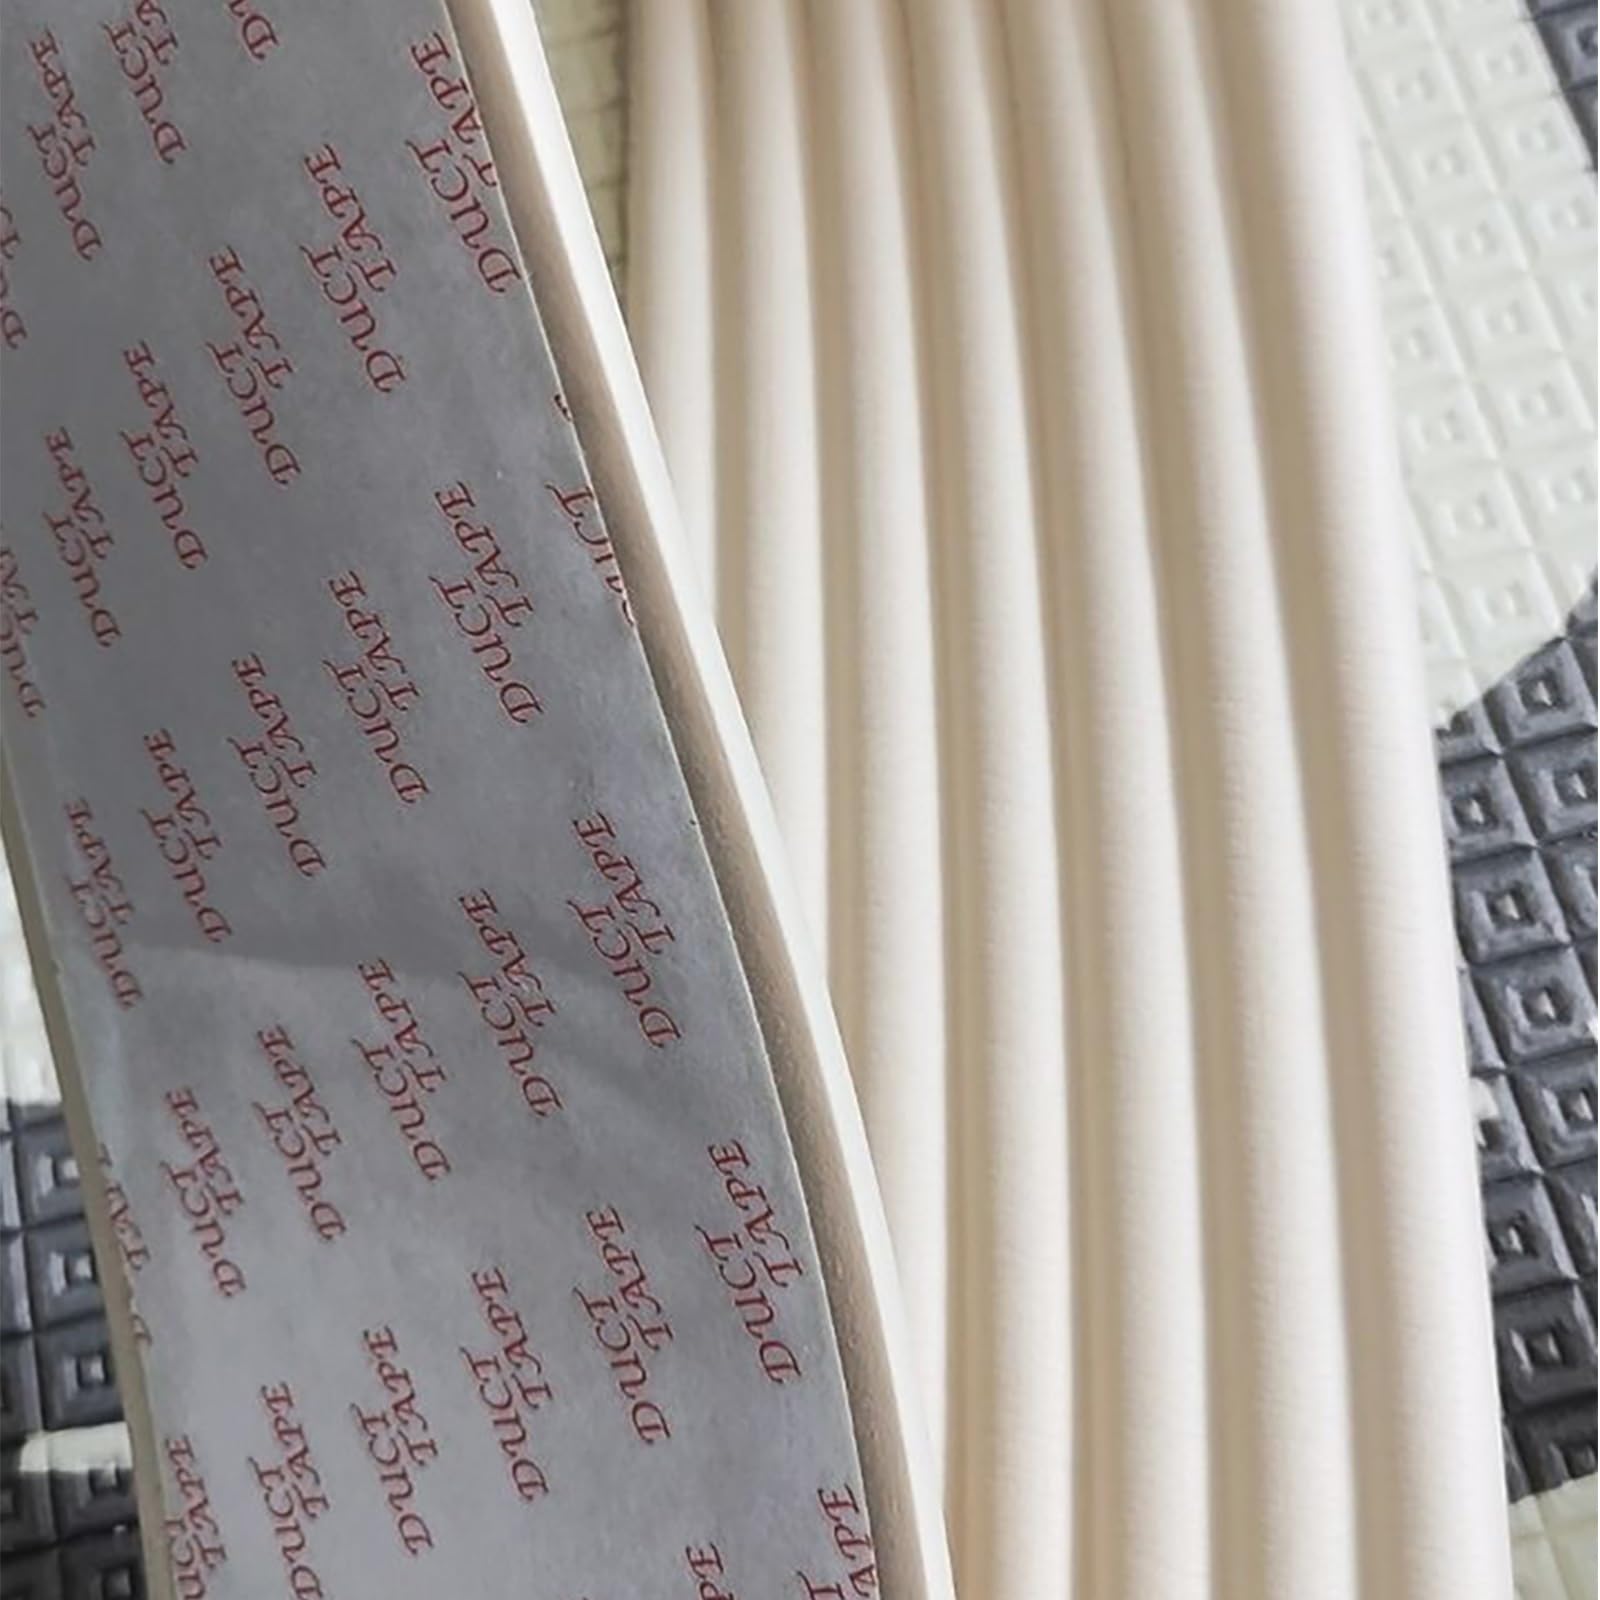 DUCT
TAPE
DUCT
TAPE
DUCT
TAPE
DUCT
TAPE
DUCT
TAPE
DUCT
TAPE
DUCT
TAPE
DUCT
TAPE
DUCT
TAPE
DUCT
TAPE
DUCT
TAPE
DUCT
TAPE
DUCT
TAPE
DUCT
TAPE
DUCT
TAPE
DUCT
TAPE
DUCT
TAPE
DUCT
TAPE
DUCT
TAPE
DUCT
TAPE
DUCT
TAPE
DUCT
TAPE
DUCT
TAPE
DUCT
TAPE